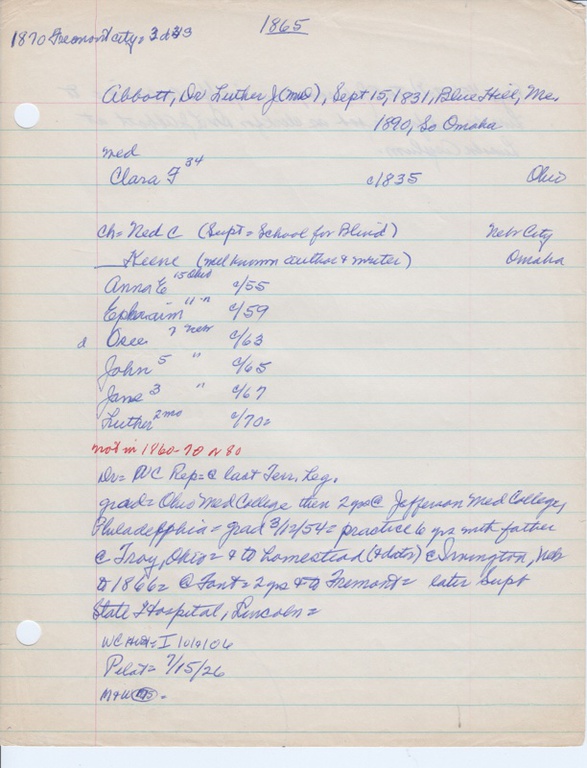 1865
1870 Fremont city = 3 d
Abbott, Dr Luther J (md), Sept 15, 1831, Blue Hill, Me.
1890, So Omaha
med
Clara F 34 c/1835 Ohio
Ch = Ned C (Supt = School for Blind) Nebr City
Keene (well known author & writer) Omaha
Anna E 15 Ohio c/55
Ephraim " " c/59
d 7 Nebr c/63
John 5 " c/65
Jane 3 " c/67
Luther 2 mo c/70 =
not in 1860-70 or 80
Dr = WC Rep = @ last Terr. Leg.
grad = Ohio Med College then 2 yrs @ Jefferson Med College,
Philadelphia = grad 3/12/54 = practice 6 yrs with father
@ Troy, Ohio = & to homestead (& dats) @ Irvington, Neb
to 1866 = @ Font = 2 yrs & to Fremont = later Supt
State Hospital, Lincoln =
WC
Pilot = 7/15/26